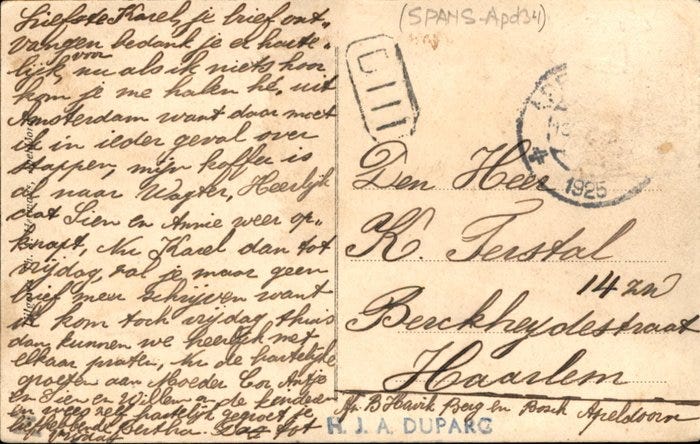 Liefste Karel, je brief ont-
vangen bedank je er harte-
lijk voor, nu als ik niets hoor
kom je me halen hé, uit
Amsterdam want daar moet
ik in ieder geval over
stappen, mijn koffer is
al naar Wagter, Heerlijk
dat Sien en Annie weer op-
knapt, Nu Karel dan tot
vrijdag, zal je maar geen
brief meer schrijven want
ik kom toch vrijdag thuis
dan kunnen we heerlijk met
elkaar praten, Nu de hartelijke
groeten aan Moeder Cor Antje
en Sien en Willem en de kinderen
en wees zelf hartelijk gegroet je
liefhebbende Bertha Dag tot
vrijdag
(SPANS-Apd34)
G III
1925
Den Heer
K. Terstal
14 zw
Berckheydestraat
Haarlem
B Havik Berg en Bosch Apeldoorn
H. J. A. DUPARC